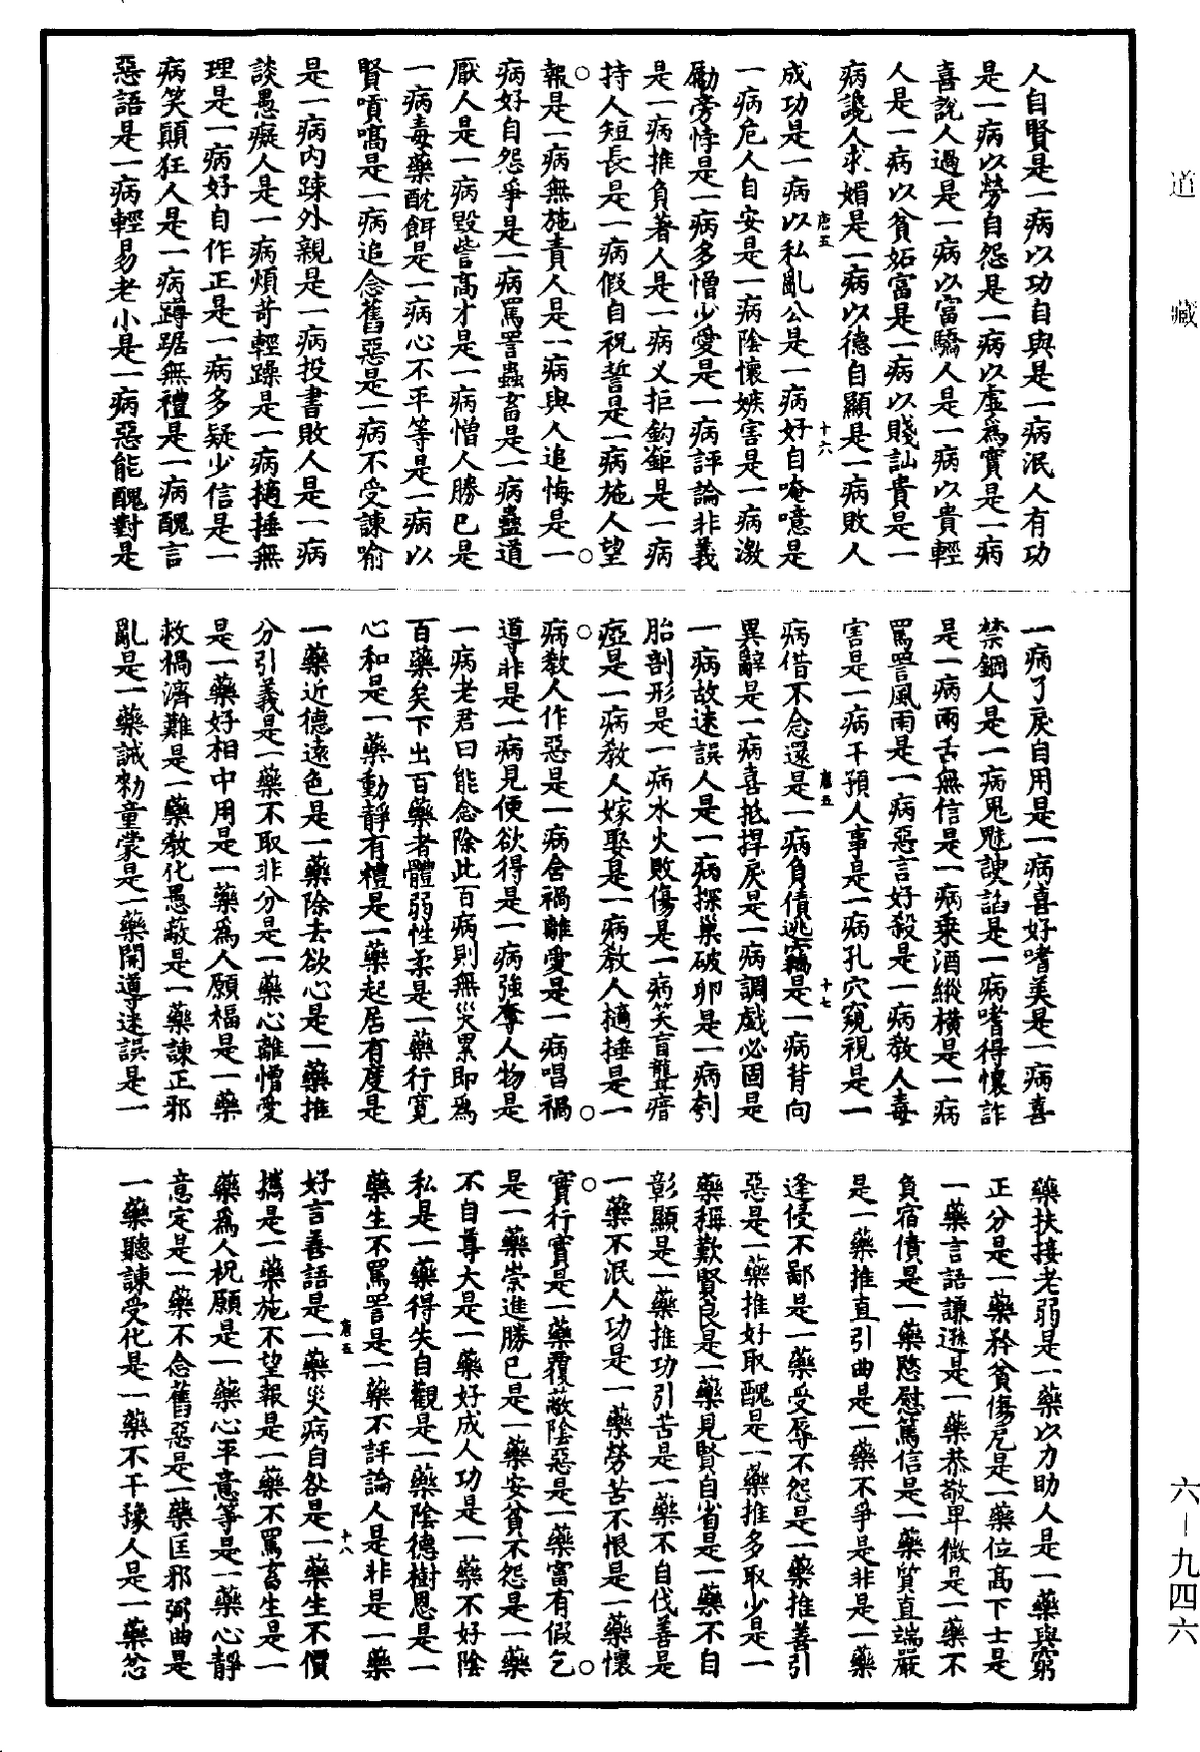 道藏
人自賢是一病以功自與是一病泯人有功
是一病以勞自怨是一病以虛為實是一病
喜說人過是一病以富驕人是一病以貴輕
人是一病以貧妬富是一病以賤訕貴是一
病讒人求媚是一病以德自顯是一病敗人
唐五 十六
成功是一病以私亂公是一病好自唵噫是
一病危人自安是一病陰懷嫉害是一病激
勵旁悖是一病多憎少愛是一病評論非義
是一病推負著人是一病义拒鈎鉅是一病
持人短長是一病假自祝誓是一病施人望
○報是一病無施責人是一病與人追悔是一○
病好自怨爭是一病罵詈蟲畜是一病蠱道
厭人是一病毀訾高才是一病憎人勝已是
一病毒藥酖餌是一病心不平等是一病以
賢嗊嗃是一病追念舊惡是一病不受諫喻
是一病內踈外親是一病投書敗人是一病
談愚癡人是一病煩苛輕躁是一病擿捶無
理是一病好自作正是一病多疑少信是一
病笑顛狂人是一病蹲踞無禮是一病醜言
惡語是一病輕易老小是一病惡態醜對是
一病了戾自用是一病喜好嗜美是一病喜
禁錮人是一病鬼魅諛諂是一病嗜得懷詐
是一病兩舌無信是一病乗酒縱橫是一病
罵詈風雨是一病惡言好殺是一病教人毒
害是一病干預人事是一病孔穴窺視是一
唐五 十七
病借不念還是一病負債逃竊是一病背向
異辭是一病喜抵捍戾是一病調戲必固是
一病故迷誤人是一病探巢破卵是一病刳
胎剖形是一病水火敗傷是一病笑盲聾瘖
瘂是一病教人嫁娶是一病教人擿捶是一
○病教人作惡是一病舍禍離愛是一病唱禍○
導非是一病見便欲得是一病強奪人物是
一病老君曰能念除此百病則無災累即為
百藥矣下出百藥者體弱性柔是一藥行寬
心和是一藥動靜有禮是一藥起居有度是
一藥近德遠色是一藥除去欲心是一藥推
分引義是一藥不取非分是一藥心離憎愛
是一藥好相中用是一藥為人願福是一藥
救禍濟難是一藥教化愚蔽是一藥諫正邪
亂是一藥誡勑童蒙是一藥開導迷誤是一
藥扶接老弱是一藥以力助人是一藥與窮
正分是一藥矜貧傷厄是一藥位高下士是
一藥言語謙遜是一藥恭敬卑微是一藥不
負宿債是一藥愍慰篤信是一藥質直端嚴
是一藥推直引曲是一藥不爭是非是一藥
逢侵不鄙是一藥受辱不怨是一藥推善引
惡是一藥推好取醜是一藥推多取少是一
藥稱歎賢良是一藥見賢自省是一藥不自
彰顯是一藥推功引苦是一藥不自伐善是
一藥不泯人功是一藥勞苦不恨是一藥懷
○實行實是一藥覆蔽陰惡是一藥富有假乞○
是一藥崇進勝已是一藥安貧不怨是一藥
不自尊大是一藥好成人功是一藥不好陰
私是一藥得失自觀是一藥陰德樹恩是一
藥生不罵詈是一藥不評論人是非是一藥
唐五 十八
好言善語是一藥災病自咎是一藥生不價
擕是一藥施不望報是一藥不罵畜生是一
藥為人祝願是一藥心平意等是一藥心靜
意定是一藥不念舊惡是一藥匡邪弼曲是
一藥聽諫受化是一藥不干豫人是一藥忿
六—九四六